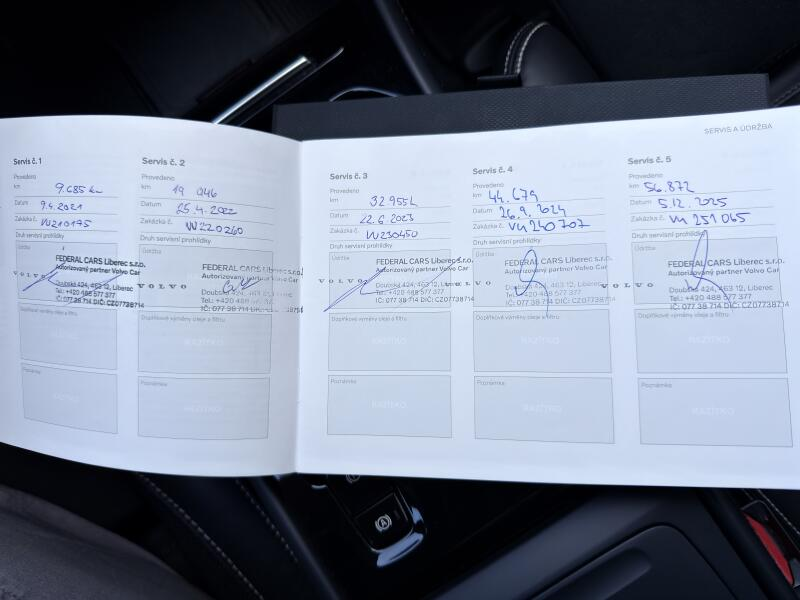 SERVIS A ÚDRŽBA
Servis č. 1
Provedeno
km 9.685 km
Datum 9.4.2021
Zakázka č. VV210175
Druh servisní prohlídky
Údržba
FEDERAL CARS Liberec s.r.o.
Autorizovaný partner Volvo Car
VOLVO
Doubská 424, 463 12, Liberec
Tel.: +420 488 577 377
IČ: 077 38 714 DIČ: CZ07738714
Doplňkové výměny oleje a filtru
RAZÍTKO
Poznámka
RAZÍTKO
Servis č. 2
Provedeno
km 19 046
Datum 25.4.2022
Zakázka č. VV220260
Druh servisní prohlídky
Údržba
FEDERAL CARS Liberec s.r.o.
Autorizovaný partner Volvo Car
VOLVO
Doubská 424, 463 12, Liberec
Tel.: +420 488 577 377
IČ: 077 38 714 DIČ: CZ07738714
Doplňkové výměny oleje a filtru
RAZÍTKO
Poznámka
RAZÍTKO
Servis č. 3
Provedeno
km 32 955
Datum 22.6.2023
Zakázka č. VV230450
Druh servisní prohlídky
Údržba
FEDERAL CARS Liberec s.r.o.
Autorizovaný partner Volvo Car
VOLVO
Doubská 424, 463 12, Liberec
Tel.: +420 488 577 377
IČ: 077 38 714 DIČ: CZ07738714
Doplňkové výměny oleje a filtru
RAZÍTKO
Poznámka
RAZÍTKO
Servis č. 4
Provedeno
km 44.679
Datum 26.9.2024
Zakázka č. VV240707
Druh servisní prohlídky
Údržba
FEDERAL CARS Liberec s.r.o.
Autorizovaný partner Volvo Car
VOLVO
Doubská 424, 463 12, Liberec
Tel.: +420 488 577 377
IČ: 077 38 714 DIČ: CZ07738714
Doplňkové výměny oleje a filtru
RAZÍTKO
Poznámka
RAZÍTKO
Servis č. 5
Provedeno
km 56.872
Datum 5.12.2025
Zakázka č. VV251065
Druh servisní prohlídky
Údržba
FEDERAL CARS Liberec s.r.o.
Autorizovaný partner Volvo Car
VOLVO
Doubská 424, 463 12, Liberec
Tel.: +420 488 577 377
IČ: 077 38 714 DIČ: CZ07738714
Doplňkové výměny oleje a filtru
RAZÍTKO
Poznámka
RAZÍTKO